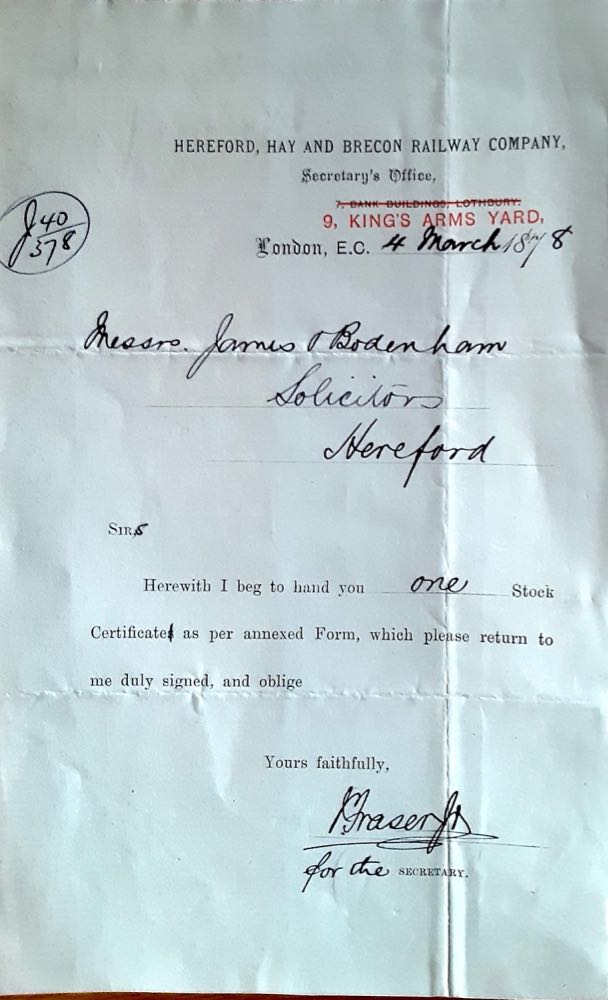 HEREFORD, HAY AND BRECON RAILWAY COMPANY,
Secretary's Office,
7, BANK BUILDINGS, LOTHBURY.
9, KING'S ARMS YARD,
J 40
378
London, E.C. 4 March 1878
Messrs. James & Bodenham
Solicitors
Hereford
SIRs
Herewith I beg to hand you one Stock
Certificate as per annexed Form, which please return to
me duly signed, and oblige
Yours faithfully,
Fraser Jr
for the SECRETARY.